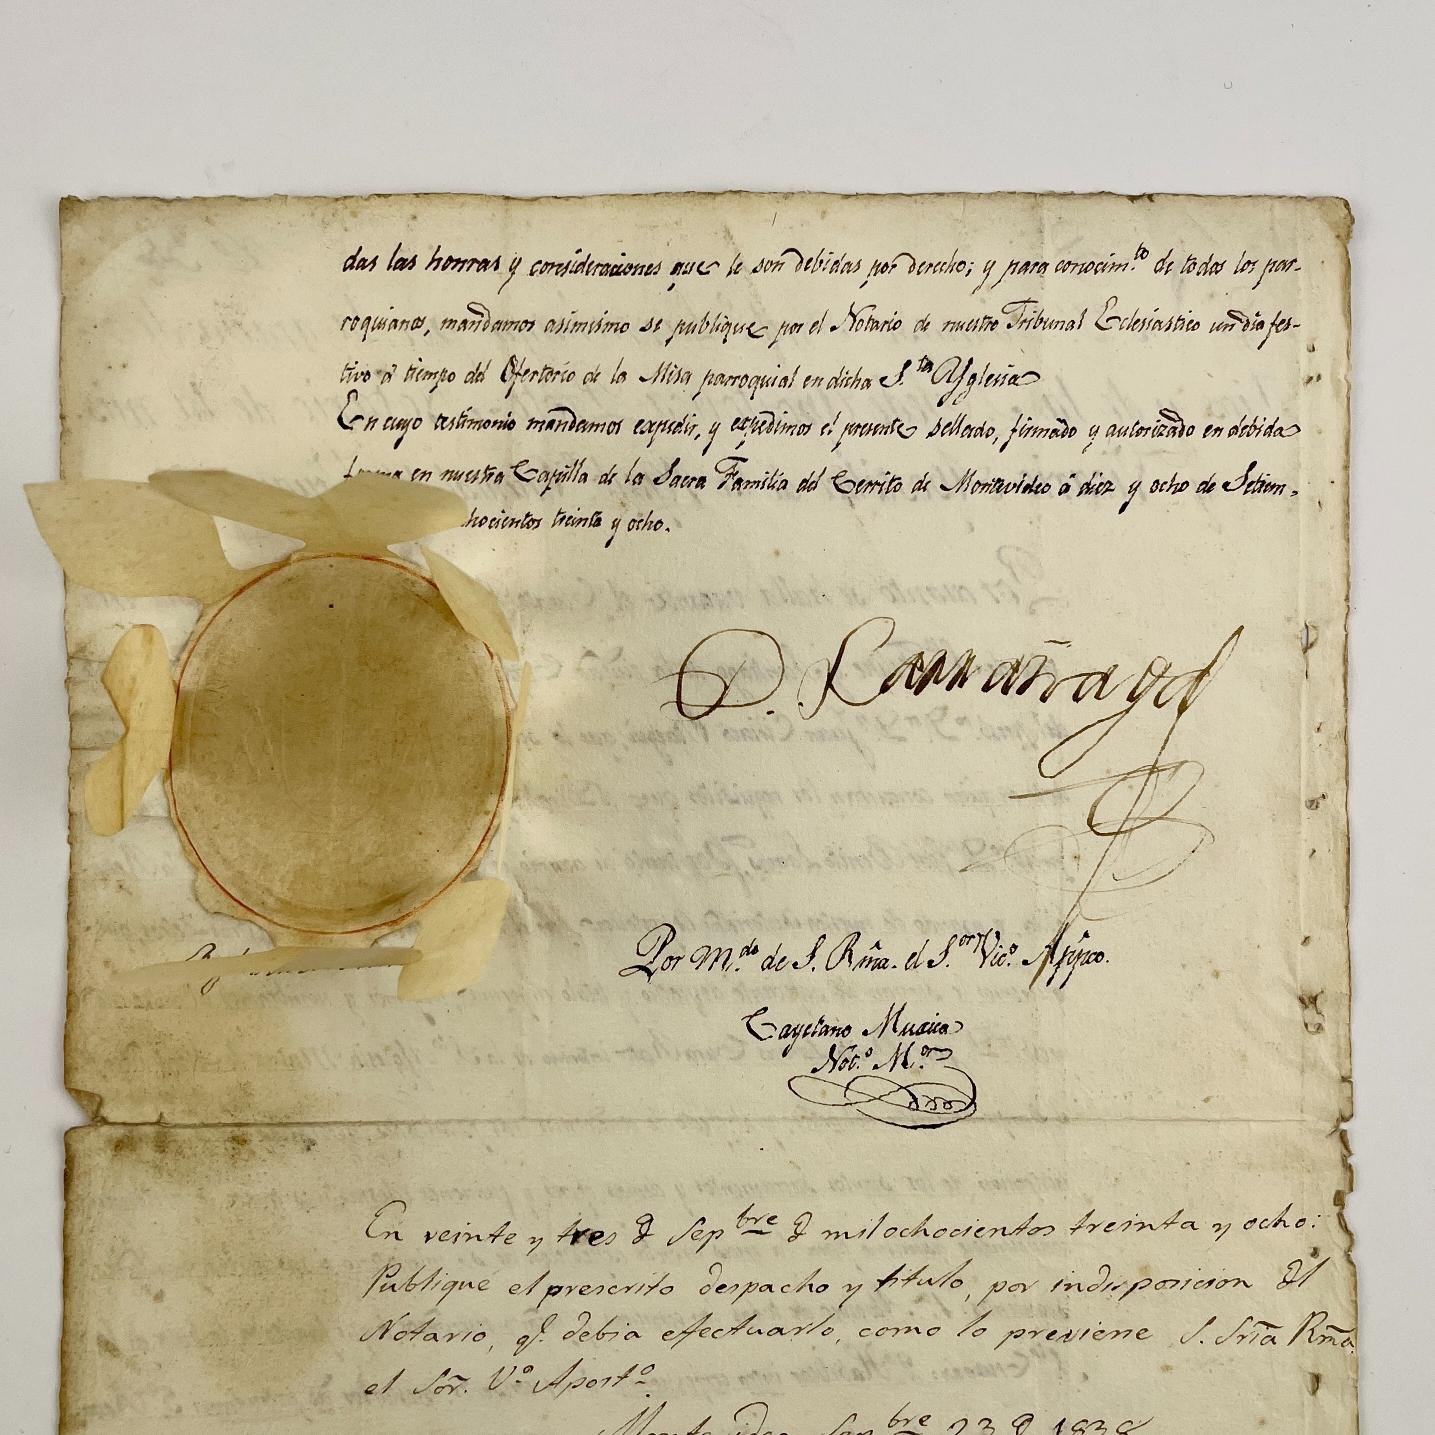 das las honras y consideraciones que le son debidas por derecho; y para conocim.to de todos los par-
roquianos, mandamos asimismo se publique por el Notario de nuestro Tribunal Eclesiastico un dia fes-
tivo á tiempo del Ofertorio de la Misa parroquial en dicha S.ta Yglesia
En cuyo testimonio mandamos expedir, y expedimos el presente sellado, firmado y autorizado en debida
forma en nuestra Capilla de la Sacra Familia del Cerrito de Montevideo á diez y ocho de Setiem-
hocientos treinta y ocho.
D. Larrañaga
Por M.do de S. Rm̃a. el S.or Vic.o App̃co.
Cayetano Muxica
Not.o M.or
En veinte y tres d Sepbre d mil ochocientos treinta y ocho:
Publiqué el prescrito despacho y titulo, por indisposicion del
Notario, q.e debia efectuarlo, como lo previene S. Sria Rm̃a
el Sor. V.o Apost.o
Montevideo Sepbre 23 d 1838